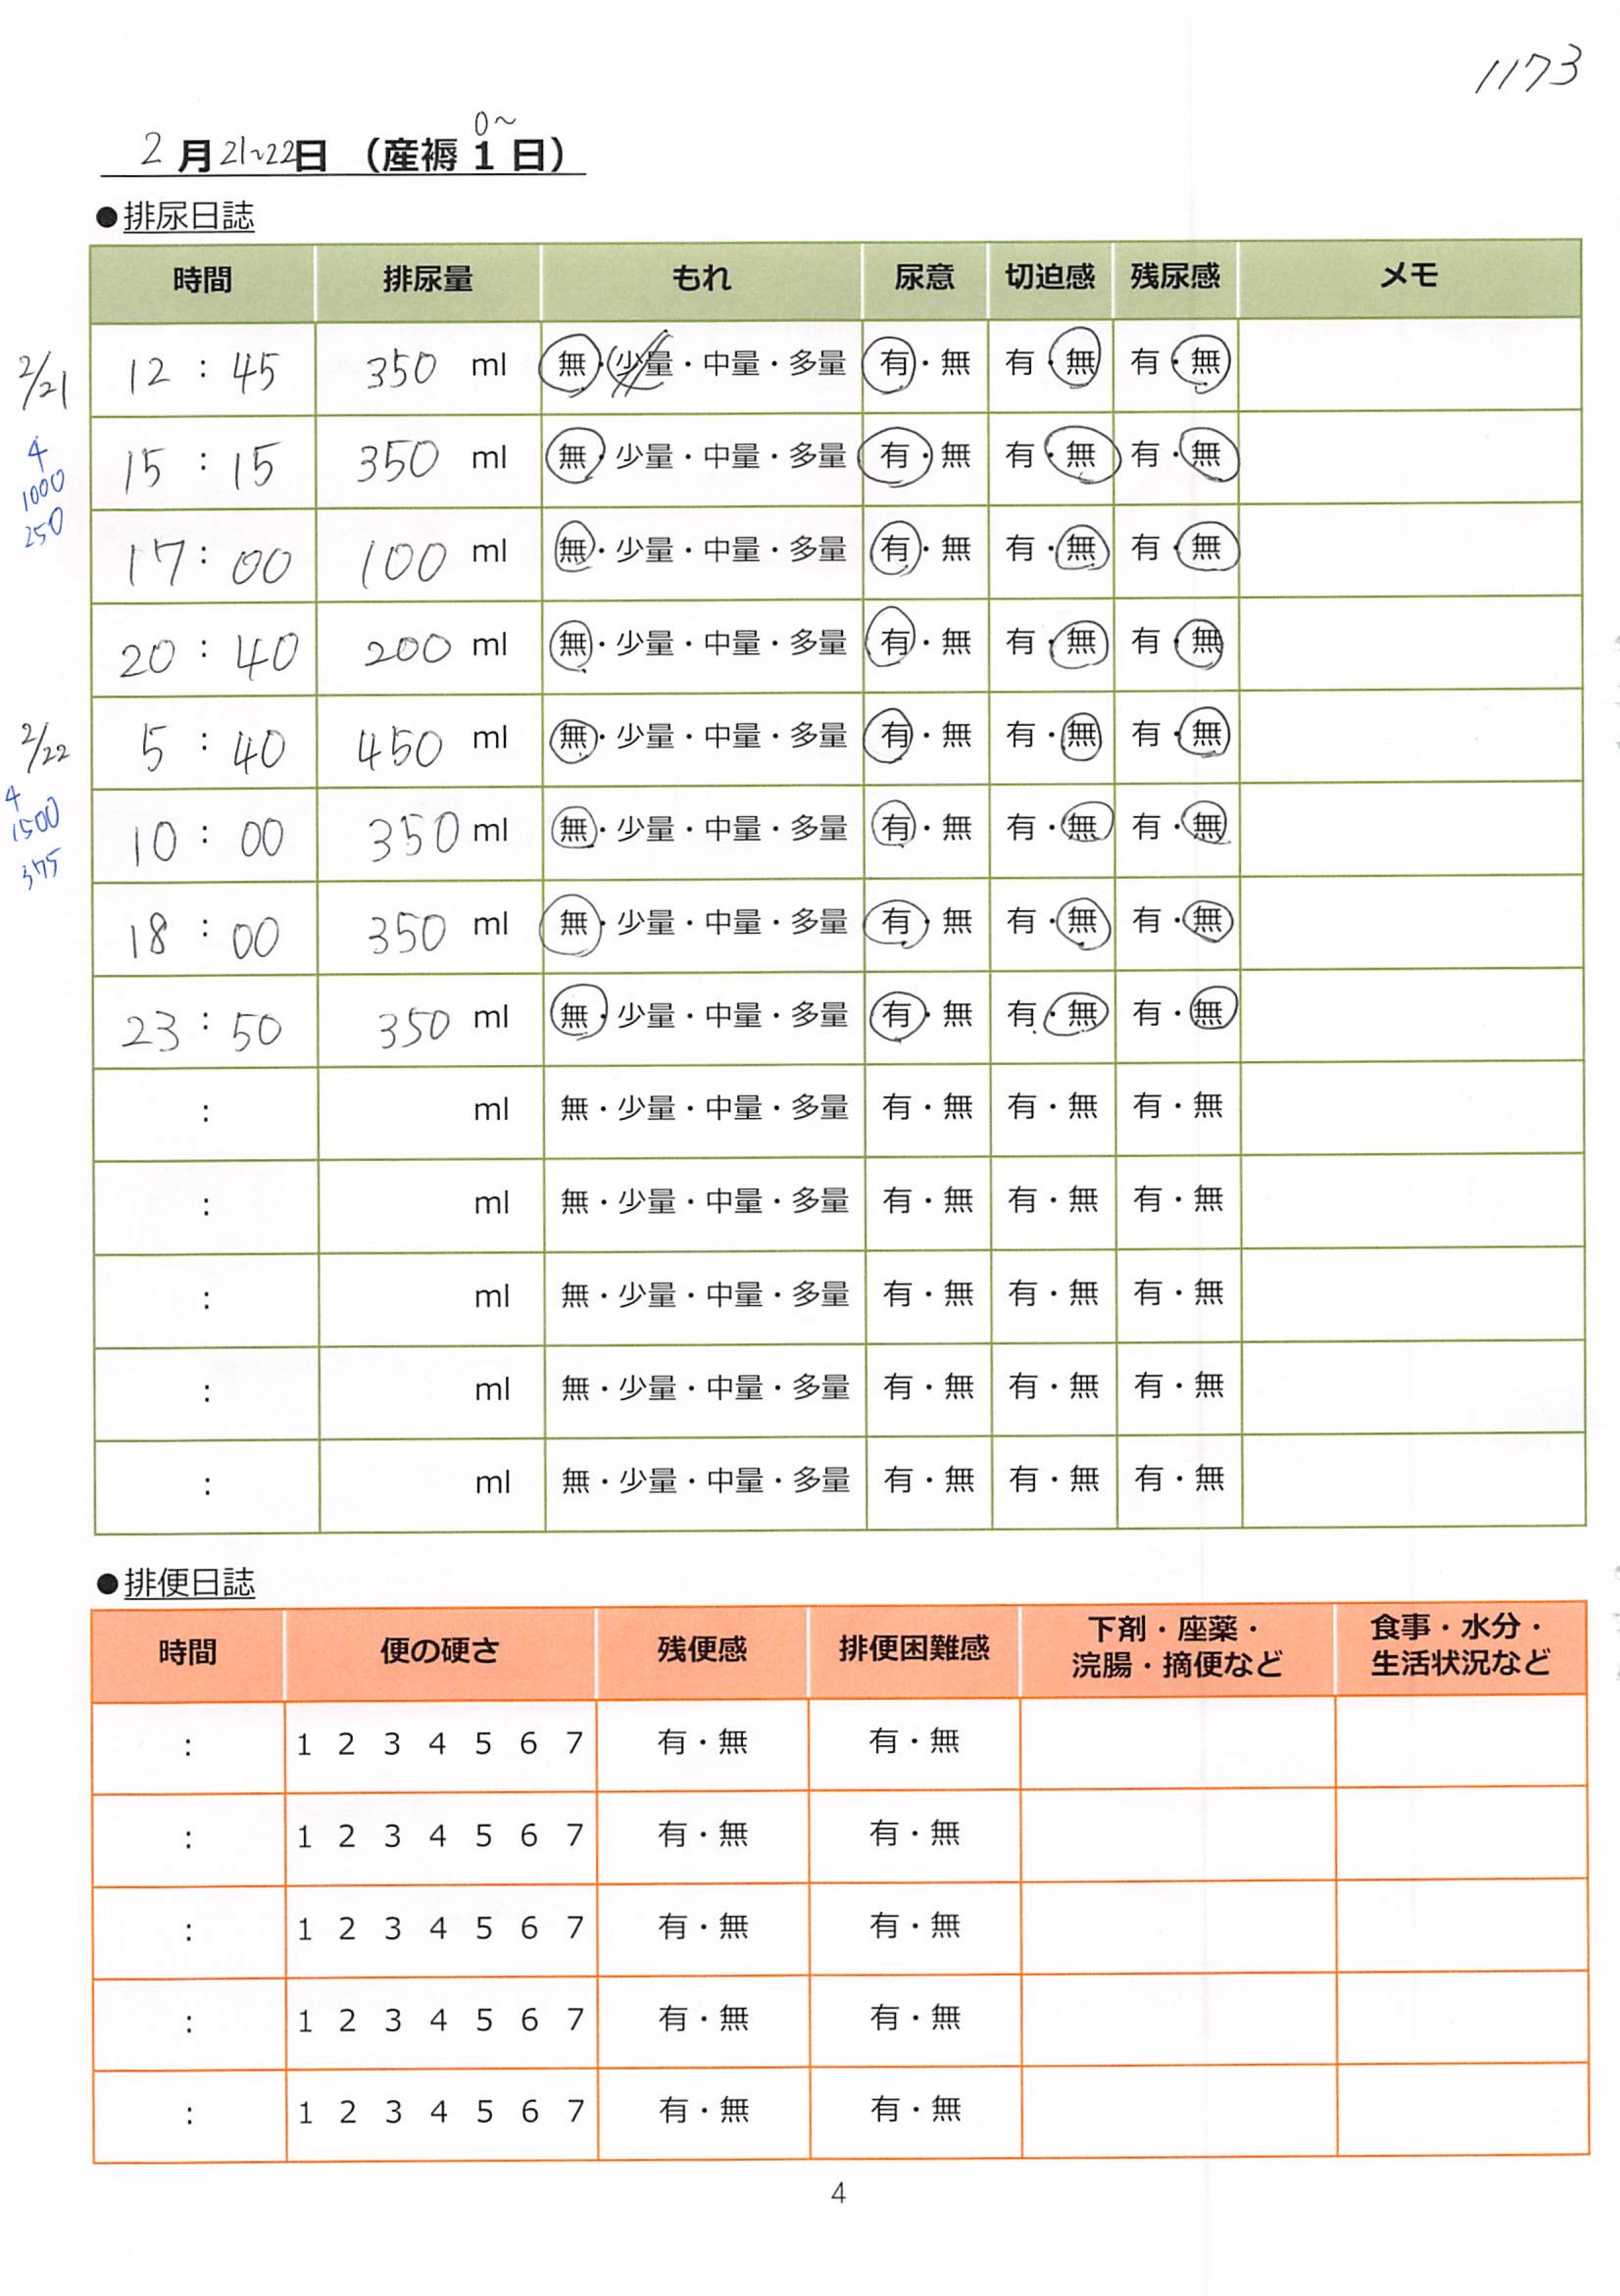 1173
0~
2月21~22日（産褥1日）
●排尿日誌
時間 排尿量 もれ 尿意 切迫感 残尿感 メモ
2/21 12:45 350 ml 無・少量・中量・多量 有・無 有・無 有・無
4
1000
250
15:15 350 ml 無・少量・中量・多量 有・無 有・無 有・無
17:00 100 ml 無・少量・中量・多量 有・無 有・無 有・無
20:40 200 ml 無・少量・中量・多量 有・無 有・無 有・無
2/22 5:40 450 ml 無・少量・中量・多量 有・無 有・無 有・無
4
1500
375
10:00 350 ml 無・少量・中量・多量 有・無 有・無 有・無
18:00 350 ml 無・少量・中量・多量 有・無 有・無 有・無
23:50 350 ml 無・少量・中量・多量 有・無 有・無 有・無
: ml 無・少量・中量・多量 有・無 有・無 有・無
: ml 無・少量・中量・多量 有・無 有・無 有・無
: ml 無・少量・中量・多量 有・無 有・無 有・無
: ml 無・少量・中量・多量 有・無 有・無 有・無
: ml 無・少量・中量・多量 有・無 有・無 有・無
●排便日誌
時間 便の硬さ 残便感 排便困難感 下剤・座薬・ 食事・水分・
浣腸・摘便など 生活状況など
: 1 2 3 4 5 6 7 有・無 有・無
: 1 2 3 4 5 6 7 有・無 有・無
: 1 2 3 4 5 6 7 有・無 有・無
: 1 2 3 4 5 6 7 有・無 有・無
: 1 2 3 4 5 6 7 有・無 有・無
4